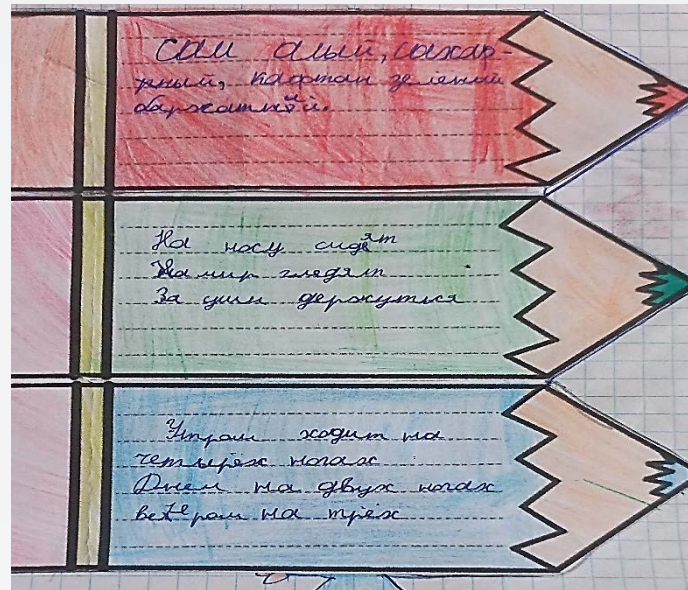 Сам алый, сахар-
рный, кафтан зеленый
бархатный.
На носу сидят
На мир гледят
За уши держуться
Утром ходит на
четырёх ногах
Днем на двух ногах
вечером на трёх